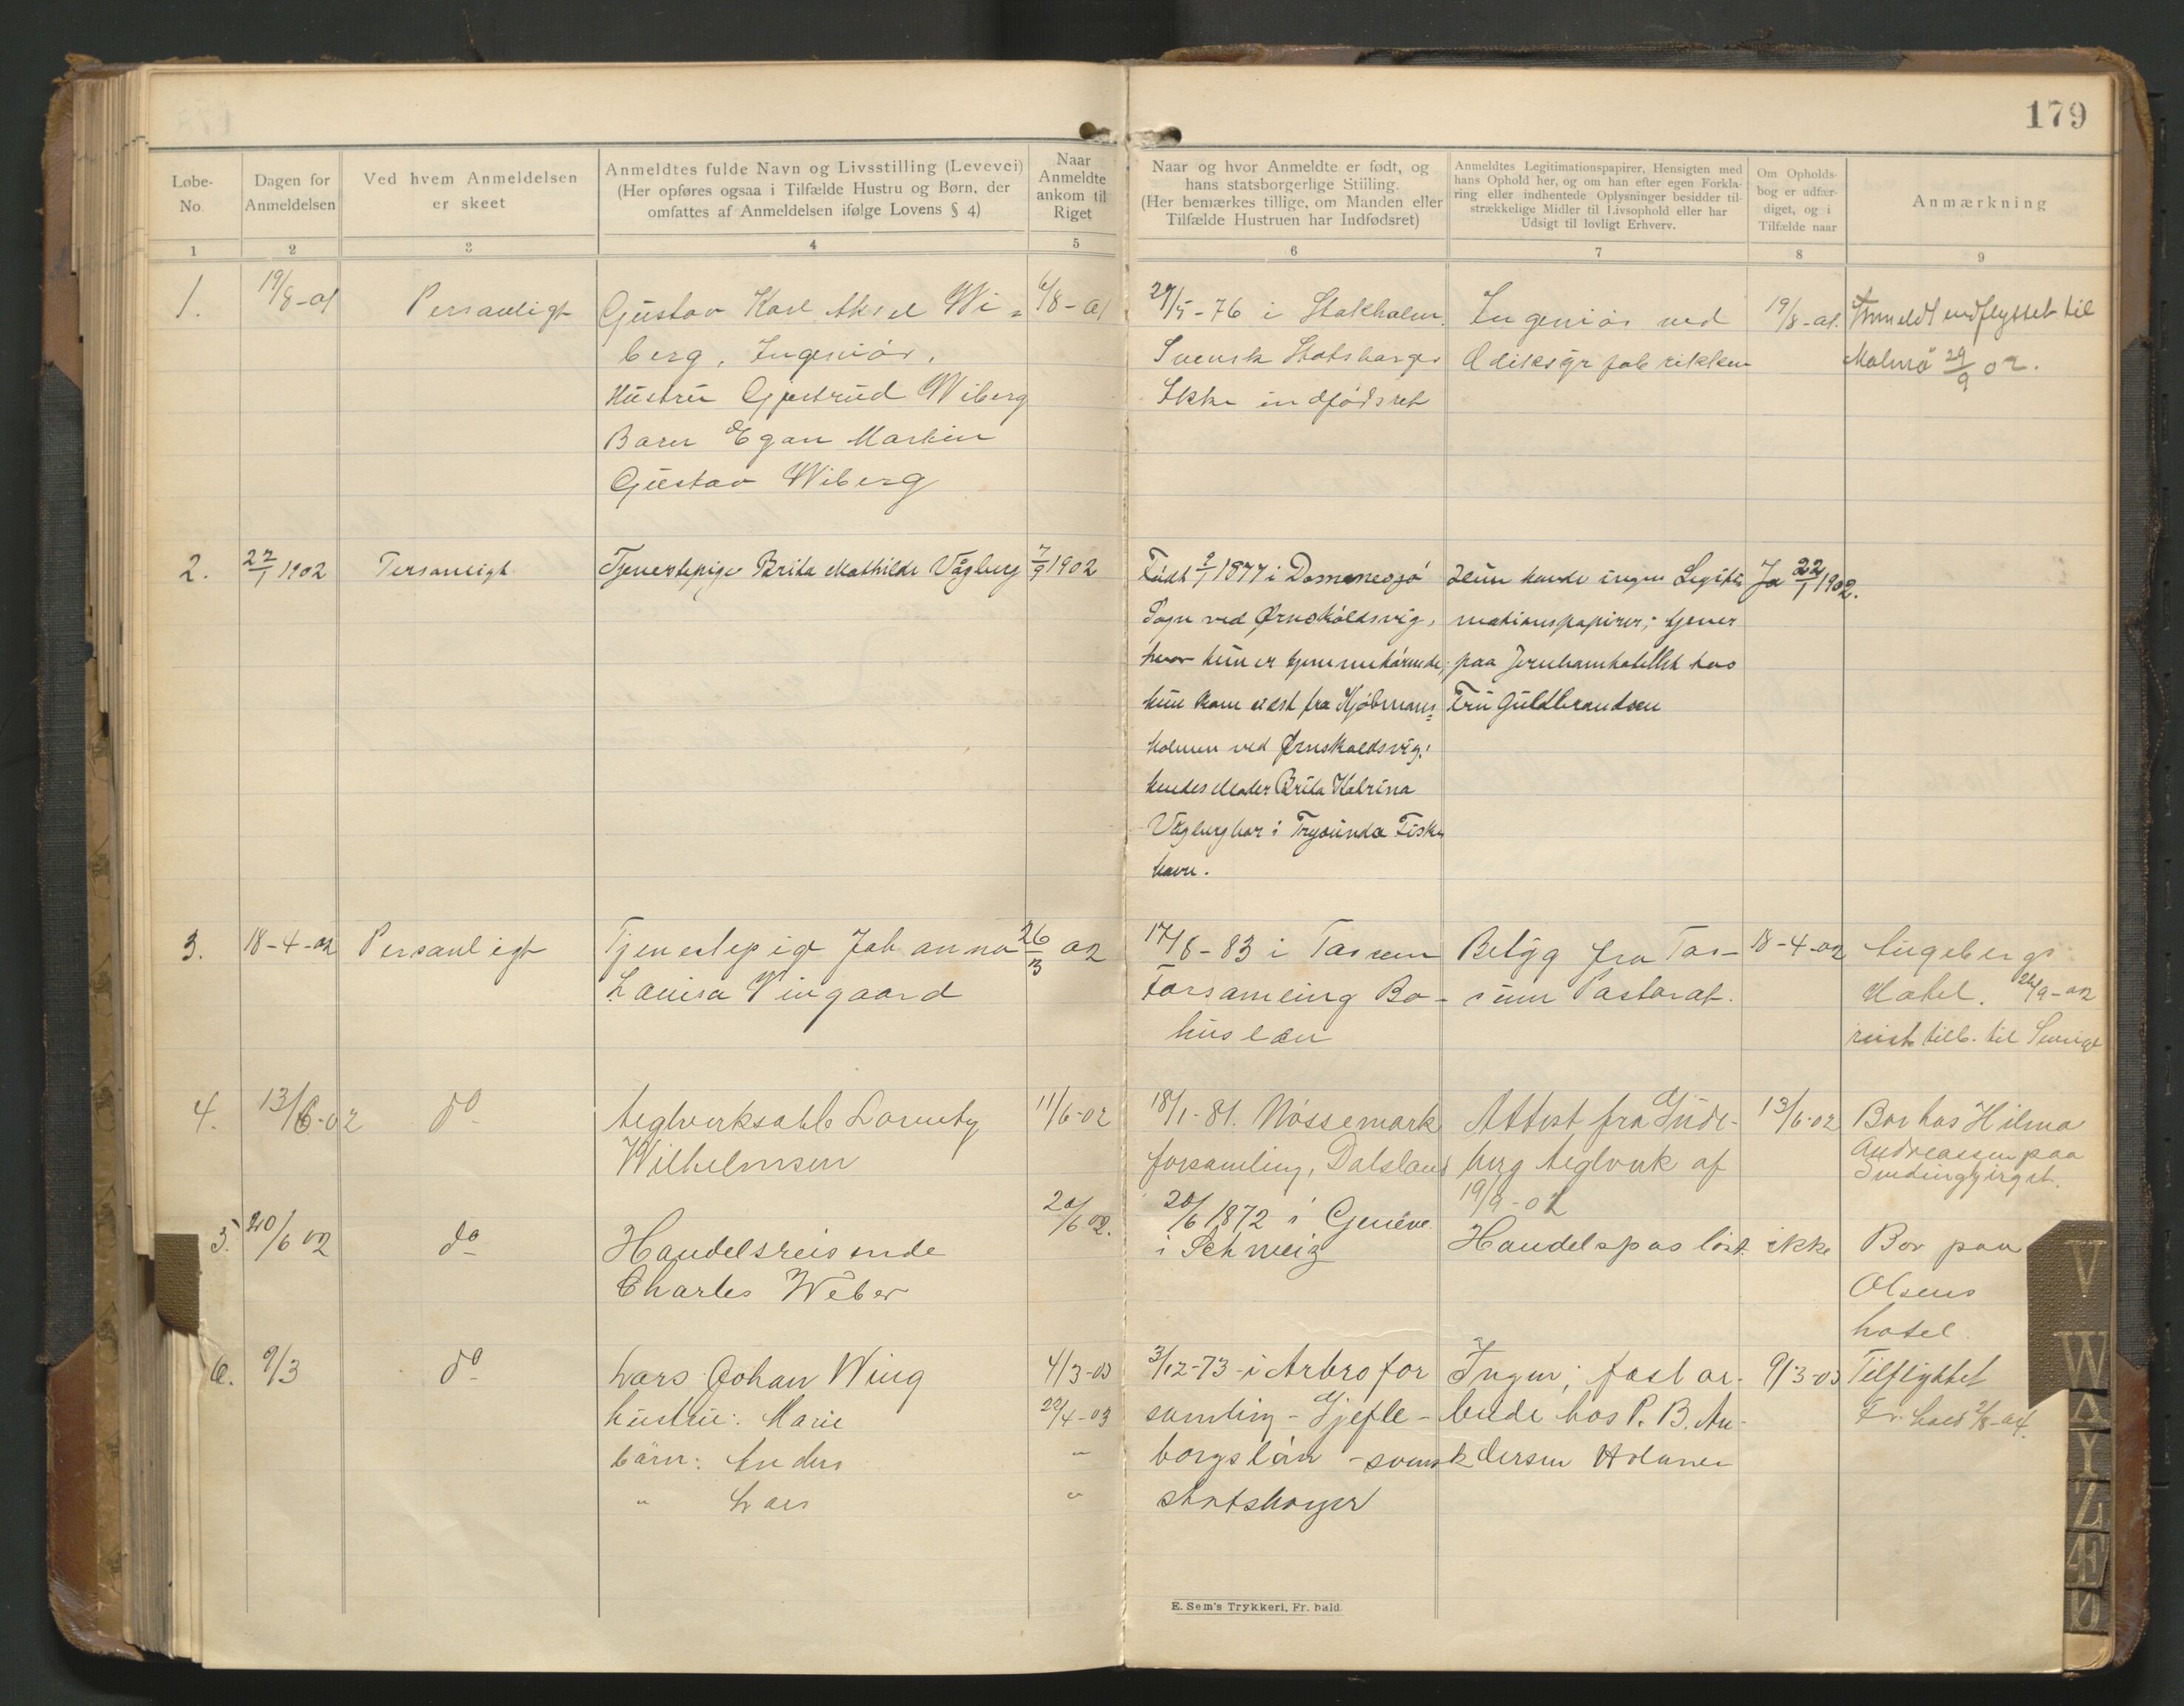 179
Løbe-No.
Dagen for Anmeldelsen
Ved hvem Anmeldelsen er skeet
Anmeldtes fulde Navn og Livsstilling (Levevei)
(Her opføres ogsaa i Tilfælde Hustru og Børn, der
omfattes af Anmeldelsen ifølge Lovens § 4)
Naar Anmeldte ankom til Riget
Naar og hvor Anmeldte er født, og
hans statsborgerlige Stilling.
(Her bemærkes tillige, om Manden eller
Tilfælde Hustruen har Indfødsret)
Anmeldtes Legitimationspapirer, Hensigten med
hans Ophold her, og om han efter egen Forkla-
ring eller indhentede Oplysninger besidder til-
strækkelige Midler til Livsophold eller har
Udsigt til lovligt Erhverv.
Om Opholds-
bog er udfær-
diget, og i
Tilfælde naar
Anmærkning
1 2 3 4 5 6 7 8 9
1. 19/8-01 Personligt
Gustav Karl Aksel Wi=
berg, Ingeniør,
Hustru Gjertrud Wiberg
Barn Egon Martin
Gustav Wiberg
6/8-01
29/5-76 i Stokholm.
Svensk Statsborger
Ikke indfødsret
Ingeniør ved
fabrikken
19/8-01.
Anmeldt udflyttet til
Malmø 29/9 02.
2. 22/1 1902 Personligt
Tjenestepige Brita Mathilde Vågberg
7/9 1902
Født 2/1 1877 i Domnesjø
Sogn ved Ørnskøldsvig,
hvor hun er hjemmehørende;
hun kom sidst fra Kjøbmans=
holmen ved Ørnskøldsvig;
hendes Moder Brita Katrina
Vågberg bor i Trysunda Fiske
havn.
Hun havde ingen Legiti-
mationspapirer; tjener
paa Jernbanehotellet hos
Fru Guldbrandsen
Ja 22/1 1902.
3. 18-4-02 Personligt
Tjenestepige Johanna
Lovisa Vingaard
26/3 02
17/8-83 i Tossene
Forsamling Bo-
huslen
Betyg fra Tos-
sene Pastorat.
18-4-02
Engebergs
Hotel. 24/9-02
reist tilb. til Sverige
4. 13/6-02 do
Teglverksarb. Lornty
Wilhelmsen
11/6-02
18/1-81. Nössemark
forsamling, Dalsland
Attest fra Gude-
berg teglverk af
19/9-01
13/6-02
Bor hos Hilma
Andreassen paa
5. 20/6 02 do
Handelsreisende
Charles Weber
20/6 02.
20/6 1872 i Genève
i Schweiz
Handelspas løst.
ikke
Bor paa
Olsens
hotel.
6. 9/3 do
Lars Johan Wing
hustru: Marie
børn: Anders
" Lars
4/3-03
22/4-03
"
"
3/12-73-i Arbro for
samling - Gjefle-
borgs län - svensk
statsborger
Ingen; fast ar-
beide hos P. B. An-
dersen Holmen
9/3-03
Tilflyttet
Fr. hald 2/8-04.
E. Sem's Trykkeri, Fr. hald.
V
W
Y
Z
Æ
Ø